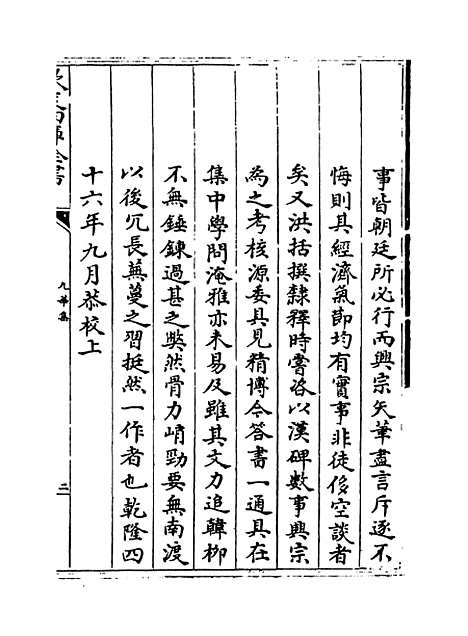 事皆朝廷所必行而興宗矢筆盡言斥逐不
悔則其經濟氣節均有實事非徒侈空談者
矣又洪括撰隸釋時嘗咨以漢碑數事興宗
為之考核源委具見精博今答書一通具在
集中學問淹雅亦未易及雖其文力追韓柳
不無錘鍊過甚之弊然骨力峭勁要無南渡
以後冗長蕪蔓之習挺然一作者也乾隆四
十六年九月恭校上
欽定四庫全書
九華集
二